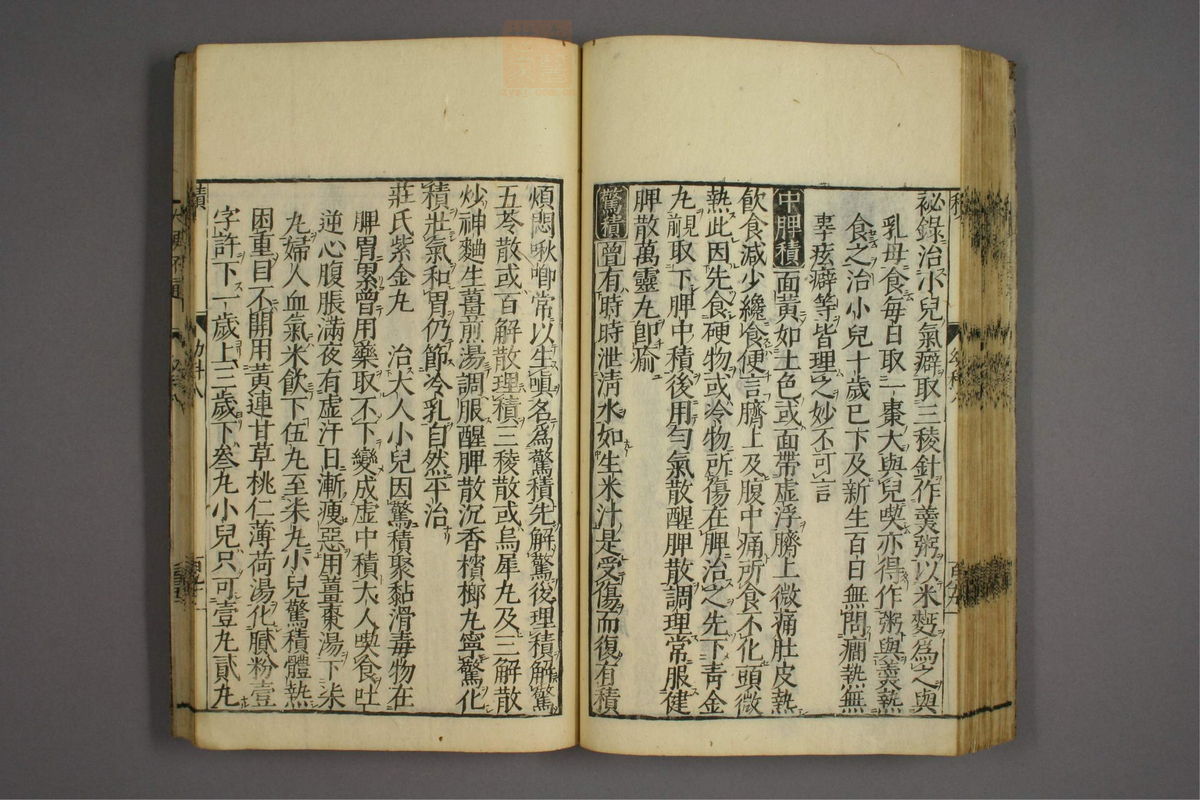 祕錄治小兒氣癖取三稜針作羮粥以米麪爲之與
乳母食每日取一棗大與兒喫亦得作粥與羮熱
食之治小兒十歲已下及新生百日無問癇熱無
辜痃癖等皆理之妙不可言
中脾積面黃如土色或面帶虛浮臍上微痛肚皮熱
飲食減少纔食便言臍上及腹中痛所食不化頭微
熱此因先食硬物或冷物所傷在脾治之先下靑金
丸覬取下脾中積後用勻氣散醒脾散調理常服健
脾散萬靈丸卽瘉
驚積曾有時時泄淸水如生米汁是受傷而復有積
煩悶啾喞常以生嗔名爲驚積先解驚後理積解驚
五苓散或百解散理積三稜散或烏犀丸及三解散
炒神麯生薑煎湯調服醒脾散沉香檳榔丸寧驚化
積壯氣和胃仍節冷乳自然平治
莊氏紫金丸　治大人小兒因驚積聚黏滑毒物在
脾胃累曾用藥取不下變成虛中積大人喫食吐
逆心腹脹滿夜有虛汗日漸瘦惡用薑棗湯下柒
丸婦人血氣米飲下伍丸至柒丸小兒驚積體熱
困重目不開用黃連甘草桃仁薄荷湯化膩粉壹
字許下一歲上二歲下叁丸小兒只可壹丸貳丸